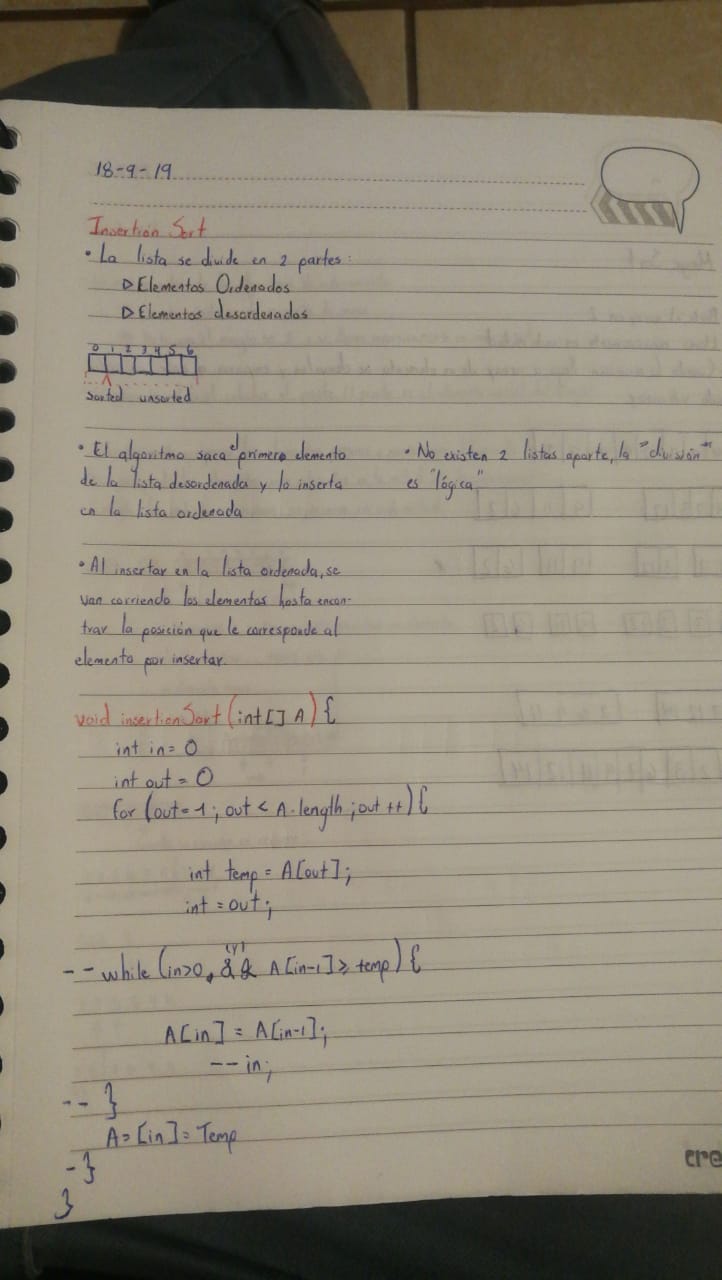 18-9-19
Insertion Sort
• La lista se divide en 2 partes:
▷ Elementos Ordenados
▷ Elementos desordenados
0 1 2 3 4 5 6
sorted unsorted
• El algoritmo saca el primero elemento
de la lista desordenada y lo inserta
en la lista ordenada
• No existen 2 listas aparte, la "división"
es "lógica"
• Al insertar en la lista ordenada, se
van corriendo los elementos hasta encon-
trar la posición que le corresponde al
elemento por insertar.
void insertionSort (int[] A) {
int in = 0
int out = 0
for (out = 1; out < A.length; out ++) {
int temp = A[out];
int = out;
(y)
-- while (in>0, && A[in-1] ≥ temp) {
A[in] = A[in-1];
-- in;
-- }
A=[in] = Temp
- }
}
cre